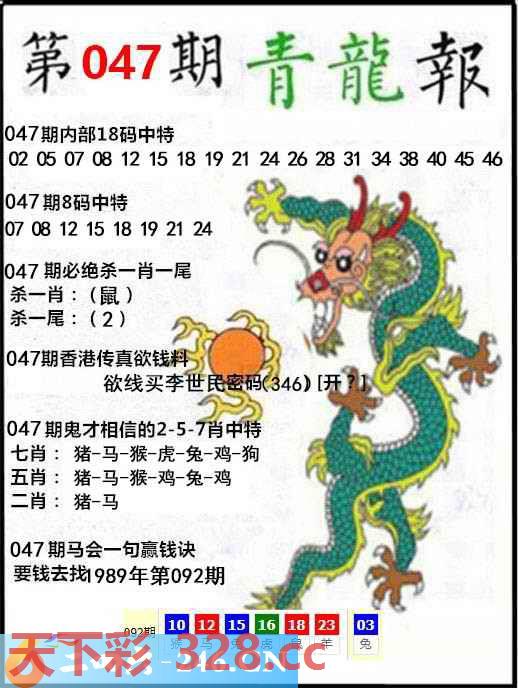 第047期青龍報
047期内部18码中特
02 05 07 08 12 15 18 19 21 24 26 28 31 34 38 40 45 46
047期8码中特
07 08 12 15 18 19 21 24
047期必绝杀一肖一尾
杀一肖：（鼠）
杀一尾：（2）
047期香港传真欲钱料
欲线买李世民密码(346) [开?]
047期鬼才相信的2-5-7肖中特
七肖： 猪-马-猴-虎-兔-鸡-狗
五肖： 猪-马-猴-鸡-兔-鸡
二肖： 猪-马
047期马会一句赢钱诀
要钱去找1989年第092期
092期 10 12 15 16 18 23 03
猴 马 虎 鼠 羊 兔
天下彩-328.cc